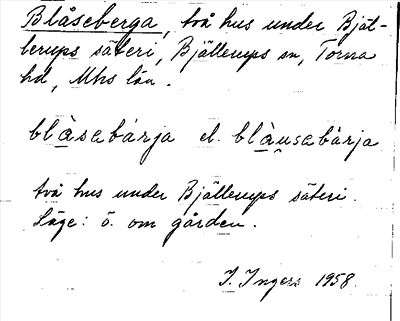 Blåseberga, två hus under Bjäl-
lerups säteri, Bjällerups sn, Torna
hd, Mhs län.
blàsebárja el. blàu̯sebárja
två hus under Bjällerups säteri.
Läge: ö. om gården.
I. Ingers 1958.